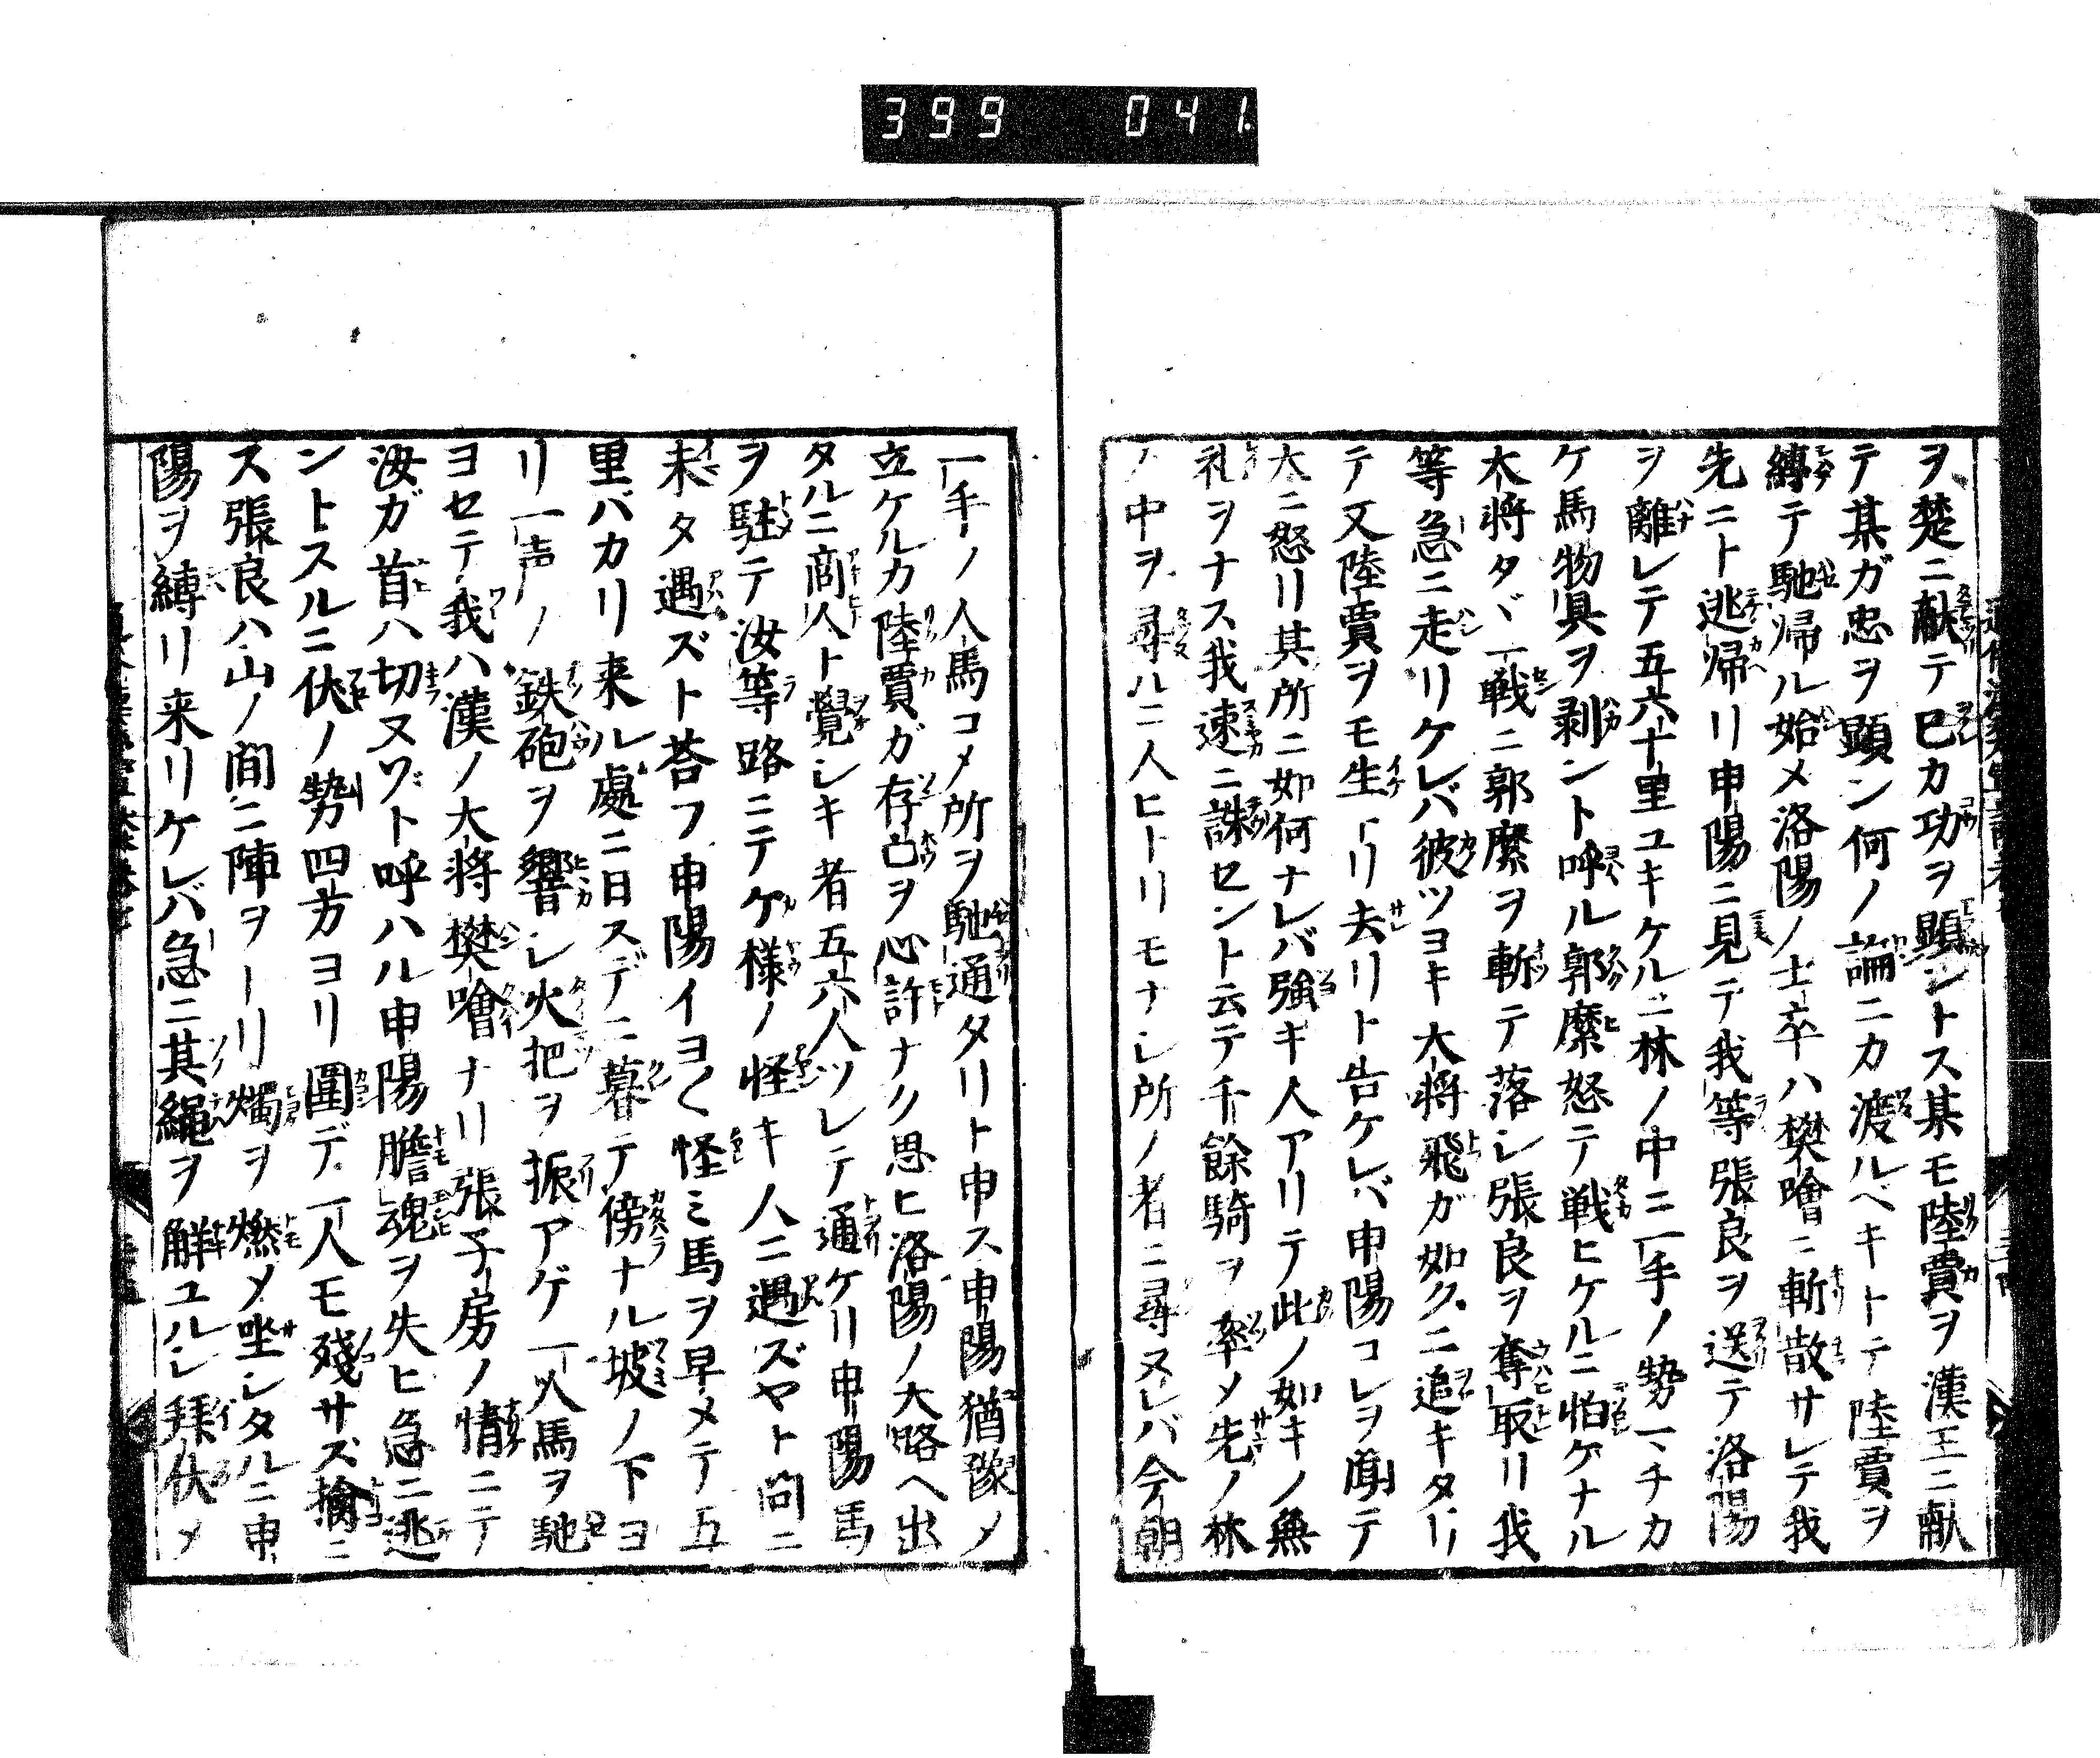 399 041.
ヲ楚ニ献テ已カ功ヲ顕ントス某モ陸賈ヲ漢王ニ献
テ某ガ忠ヲ顕ン何ノ論ニカ渡ルベキトテ陸賈ヲ
縛テ馳帰ル始メ洛陽ノ士卒ハ樊噲ニ斬散サレテ我
先ニト逃帰リ申陽ニ見テ我等張良ヲ送テ洛陽
ヲ離レテ五六十里ユキケルニ林ノ中ニ一手ノ勢マチカ
ケ馬物具ヲ剥ント呼ル郭縻怒テ戦ヒケルニ怕ケナル
大将タヾ一戦ニ郭縻ヲ斬テ落シ張良ヲ奪取リ我
等急ニ走リケレバ彼ツヨキ大将飛ガ如クニ追キタリ
テ又陸賈ヲモ生トリ去リト告ケレバ申陽コレヲ聞テ
大ニ怒リ其所ニ如何ナレバ強キ人アリテ此ノ如キノ無
礼ヲナス我速ニ誅セント云テ千餘騎ヲ率メ先ノ林
ノ中ヲ尋ルニ人ヒトリモナシ所ノ者ニ尋ヌレバ今朝
一手ノ人馬コメ所ヲ馳通タリト申ス申陽猶豫メ
立ケルカ陸賈ガ存亡ヲ心許ナク思ヒ洛陽ノ大路ヘ出
タルニ商人ト覺シキ者五六人ツレテ通ケリ申陽馬
ヲ駐テ汝等路ニテケ様ノ怪キ人ニ遇ズヤト問ニ
未タ遇ズト荅フ申陽イヨ〱怪ミ馬ヲ早メテ五
里バカリ来ル處ニ日スデニ暮テ傍ナル坡ノ下ヨ
リ一声ノ鉄砲ヲ響シ火把ヲ振アゲ一人馬ヲ馳
ヨセテ我ハ漢ノ大将樊噲ナリ張子房ノ情ニテ
汝ガ首ハ切ヌヅト呼ハル申陽膽魂ヲ失ヒ急ニ逃
ントスルニ伏ノ勢四方ヨリ圍デ一人モ殘サズ擒ニ
ス張良ハ山ノ間ニ陣ヲトリ燭ヲ燃メ坐シタルニ申
陽ヲ縛リ来リケレバ急ニ其繩ヲ觧ユルシ拜伏メ